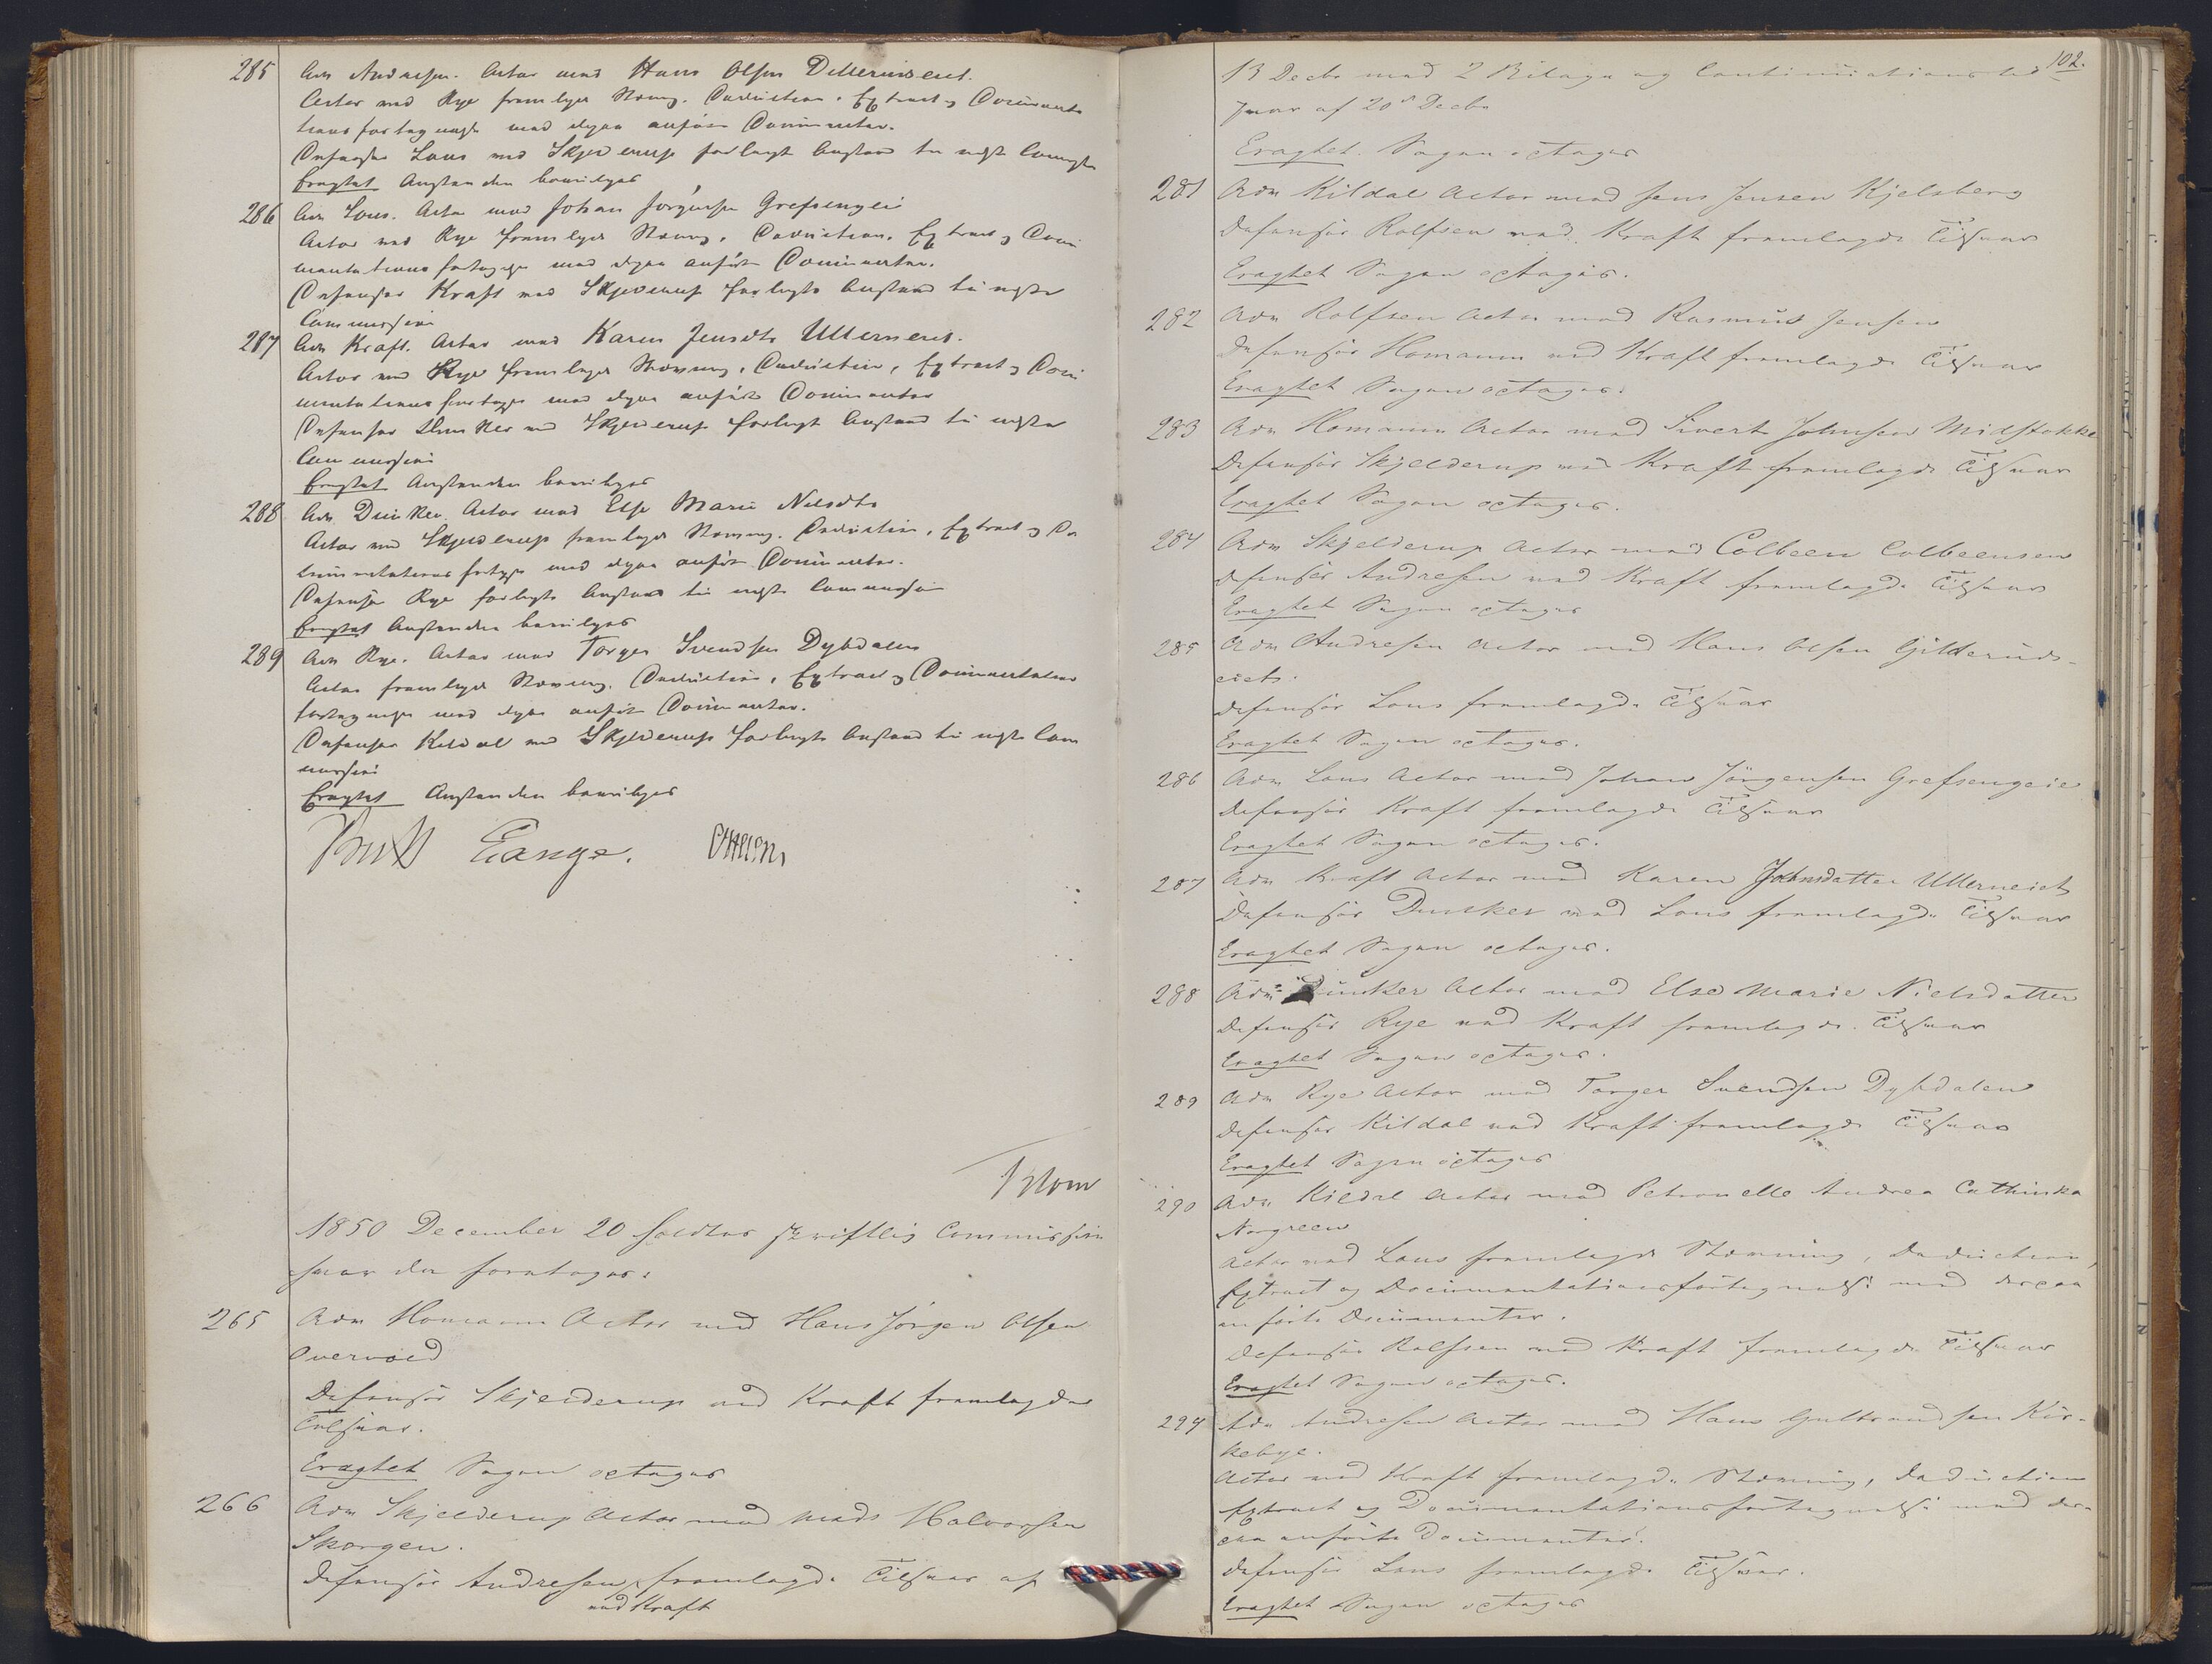 285 Adv Andresen. Actor mod Hans Olsen Dillerudseiet.
Actor ved Rye fremlagde Stevning, Deduction, Extract og Documenta
tions fortegnelse med deri anførte Documenter.
Defensor Lous ved Skjelderup forlangte Anstand til næste Commiss
Eragtet Anstanden bevilges
286 Adv Lous. Actor mod Johan Jørgensen Grefsengeie
Actor ved Rye fremlagde Stevning, Deduction, Extract og Docu
mentations fortegnelse med deri anførte Documenter.
Defensor Kraft ved Skjelderup forlangte Anstand til næste
Commission
287 Adv Kraft. Actor mod Karen Jensdtr Ullerneiet.
Actor ved Rye fremlagde Stevning, Deduction, Extract og Docu
mentations fortegnelse med deri anførte Documenter
Defensor Dunker ved Skjelderup forlangte Anstand til næste
Commission
Eragtet Anstanden bevilges
288 Adv. Dunker. Actor mod Else Marie Nilsdtr
Actor ved Skjelderup fremlagde Stevning, Deduction, Extract og Do
cumentations fortegnelse med deri anførte Documenter.
Defensor Rye forlangte Anstand til næste Commission
Eragtet Anstanden bevilges
289 Adv Rye. Actor mod Torger Svendsen Dybdalen
Actor fremlagde Stevning, Deduction, Extract og Documentations
fortegnelse med deri anførte Documenter.
Defensor Kildal ved Skjelderup forlangte Anstand til næste Com
mission
Eragtet Anstanden bevilges
Lange.
Blom
1850 December 20 holdtes skriftlig Commission
hvor da foretoges:
265 Adv Homann Actor mod Hans Jörgen Olsen
Overvold
Defensör Skjelderup ved Kraft fremlagde
Tilsvar.
Eragtet Sagen optages
266 Adv Skjelderup Actor mod Mads Halvorsen
Skorgen.
Defensör Andresen fremlagde Tilsvar af
ved Kraft
102.
13 Decbr med 2 Bilage og Continuationstil
svar af 20de Decbr
Eragtet. Sagen optages
281 Adv Kildal Actor mod Jens Jensen Kjelsberg
Defensör Rolfsen ved Kraft fremlagde Tilsvar
Eragtet Sagen optages.
282 Adv Rolfsen Actor mod Rasmus Jensen
Defensör Homann ved Kraft fremlagde Tilsvar
Eragtet Sagen optages.
283 Adv Homann Actor mod Sivert Johnsen Midstokke
Defensör Skjelderup ved Kraft fremlagde Tilsvar
Eragtet Sagen optages.
284 Adv Skjelderup Actor mod Colbeen Colbeensen
Defensör Andresen ved Kraft fremlagde Tilsvar
Eragtet Sagen optages
285 Adv Andresen Actor mod Hans Olsen Gilderuds-
eiet.
Defensör Lous fremlagde Tilsvar
Eragtet Sagen optages.
286 Adv Lous Actor mod Johan Jörgensen Grefsengeie
Defensör Kraft fremlagde Tilsvar
Eragtet Sagen optages.
287 Adv Kraft Actor mod Karen Johnsdatter Ullerneiet
Defensör Dunker ved Lous fremlagde Tilsvar
Eragtet Sagen optages.
288 Adv Dunker Actor mod Else Marie Nielsdatter
Defensör Rye ved Kraft fremlagde Tilsvar
Eragtet Sagen optages.
289 Adv Rye Actor mod Torger Svendsen Dybdalen
Defensör Kildal ved Kraft fremlagde Tilsvar
Eragtet Sagen optages
290 Adv Kildal Actor mod Petronelle Andrea Cathinka
Norgreen
Actor ved Lous fremlagde Stevning, Deduction,
Extract og Documentationsfortegnelse med derpaa
anførte Documenter.
Defensör Rolfsen ved Kraft fremlagde Tilsvar
Eragtet Sagen optages.
294 Adv Andresen Actor mod Hans Gulbrandsen Kir-
kebye.
Actor ved Kraft fremlagde Stevning, Deduction
Extract og Documentationsfortegnelse med der-
paa anførte Documenter.
Defensör Lous fremlagde Tilsvar.
Eragtet Sagen optages